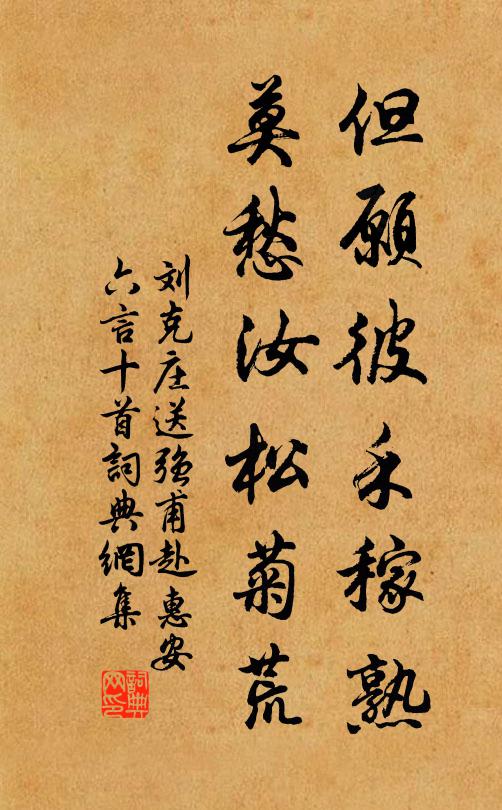 但願彼禾稼熟
莫愁汝松菊荒
刘克庄送强甫赴惠安
六言十首詞典網集
詞典网印